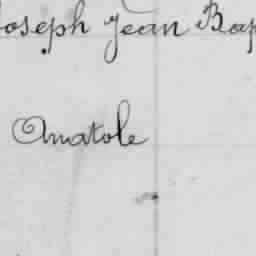 Joseph Jean Bap
Anatole